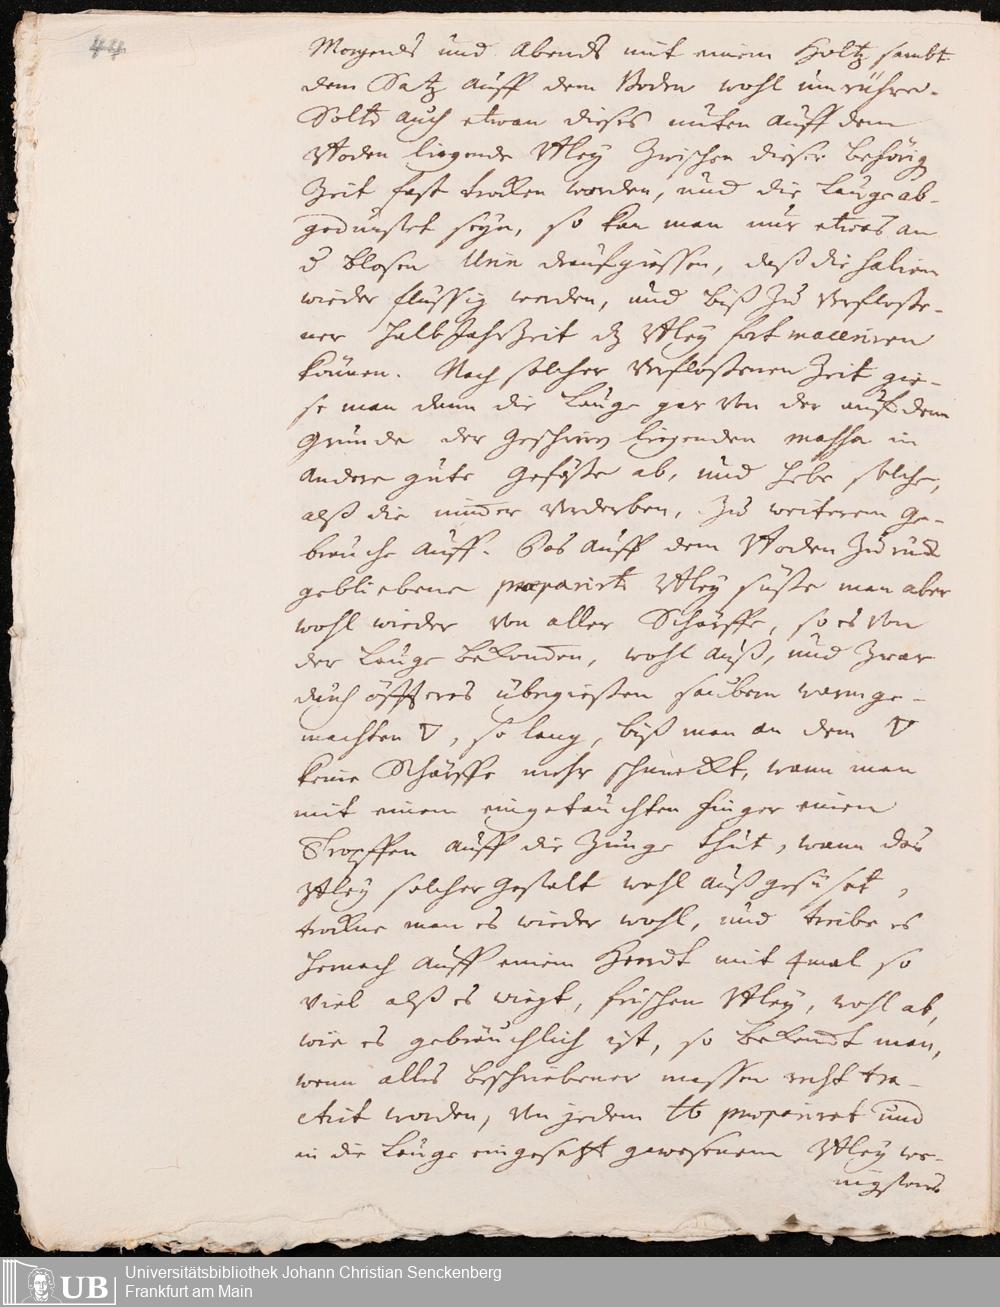 44
Morgends und Abends mit einem Holtz sambt
dem Satz auff dem Boden wohl umrühre.
Solte auch etwan dieses unten auff dem
Boden liegende Bley zwischen dieser behörig
Zeit fast trocken worden, und die Lauge ab-
gedünstet seyn, so kan man nur etwas an
blosen Urin draufgiessen, daß die salien
wieder flüssig werden, und biß zu verfloße-
ner halb Jahrzeit dz Bley fort maceriren
können. Nach solcher verfloßenen Zeit gie-
se man dann die Lauge gar von der auf dem
Grunde der Geschirrn liegenden massa in
andere gute Gefäße ab, und hebe solche,
alß die nimmer verderben, zu weiterem Ge-
brauche auff. Das auff dem Boden zurück
gebliebene præparirte Bley süße man aber
wohl wieder von aller Schärffe, so es von
der Lauge bekommen, wohl auß, und zwar
durch öffteres übergießen saubern warmge-
machten 🜄, so lang, biß man an dem 🜄
keine Schärffe mehr schmeckt, wann man
mit einem eingetauchten Finger einen
Tropffen auff die Zunge thut, wann das
Bley solcher Gestalt wohl außgesüset,
trockne man es wieder wohl, und treibe es
hernach auff einem Heerdt mit 4mal so
viel alß es wiegt, frischen Bley, wohl ab,
wie es gebräuchlich ist, so bekomt man,
wenn alles beschriebener massen recht tra-
ctirt worden, von jedem ℔ præpariret und
in die Lauge eingesetzt gewesenem Bley we-
nigstens
UB
Universitätsbibliothek Johann Christian Senckenberg
Frankfurt am Main